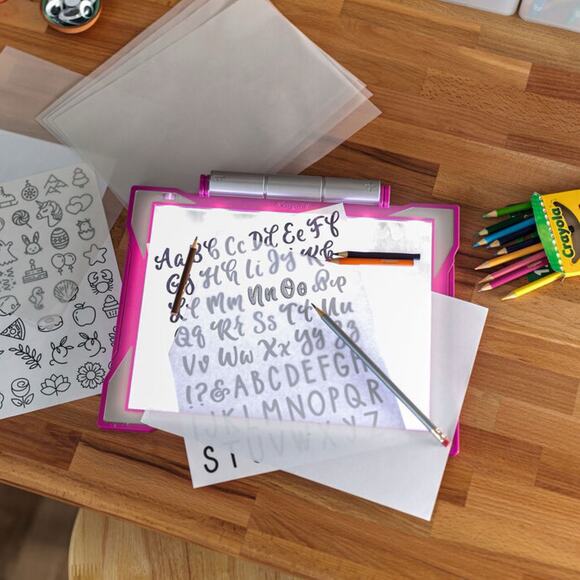 Aa Bb Cc Dd Ee Ff
Gg Hh Ii Jj Kk
Ll Mm Nn Oo Pp
Qq Rr Ss Tt Uu
Vv Ww Xx Yy Zz
!?&ABCDEFGH
IJKLMNOPQR
STUVWXYZ
Crayola